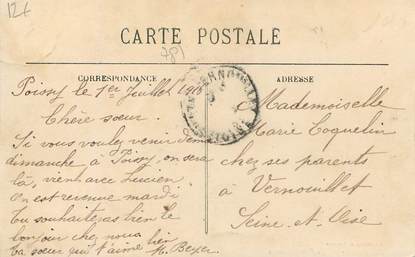 12f
CARTE POSTALE
CORRESPONDANCE
Poissy le 1er Juillet
Chère sœur.
Si vous voulez venir
dimanche à Poissy, on sera
là, vient avec Lucien.
On est revenue mardi
Tu souhaiteras bien le
bonjour chez nous
Ta sœur qui t'aime bien
H. Beyer
ADRESSE
Mademoiselle
Marie Coquelin
chez ses parents
à Vernouillet
Seine-et-Oise